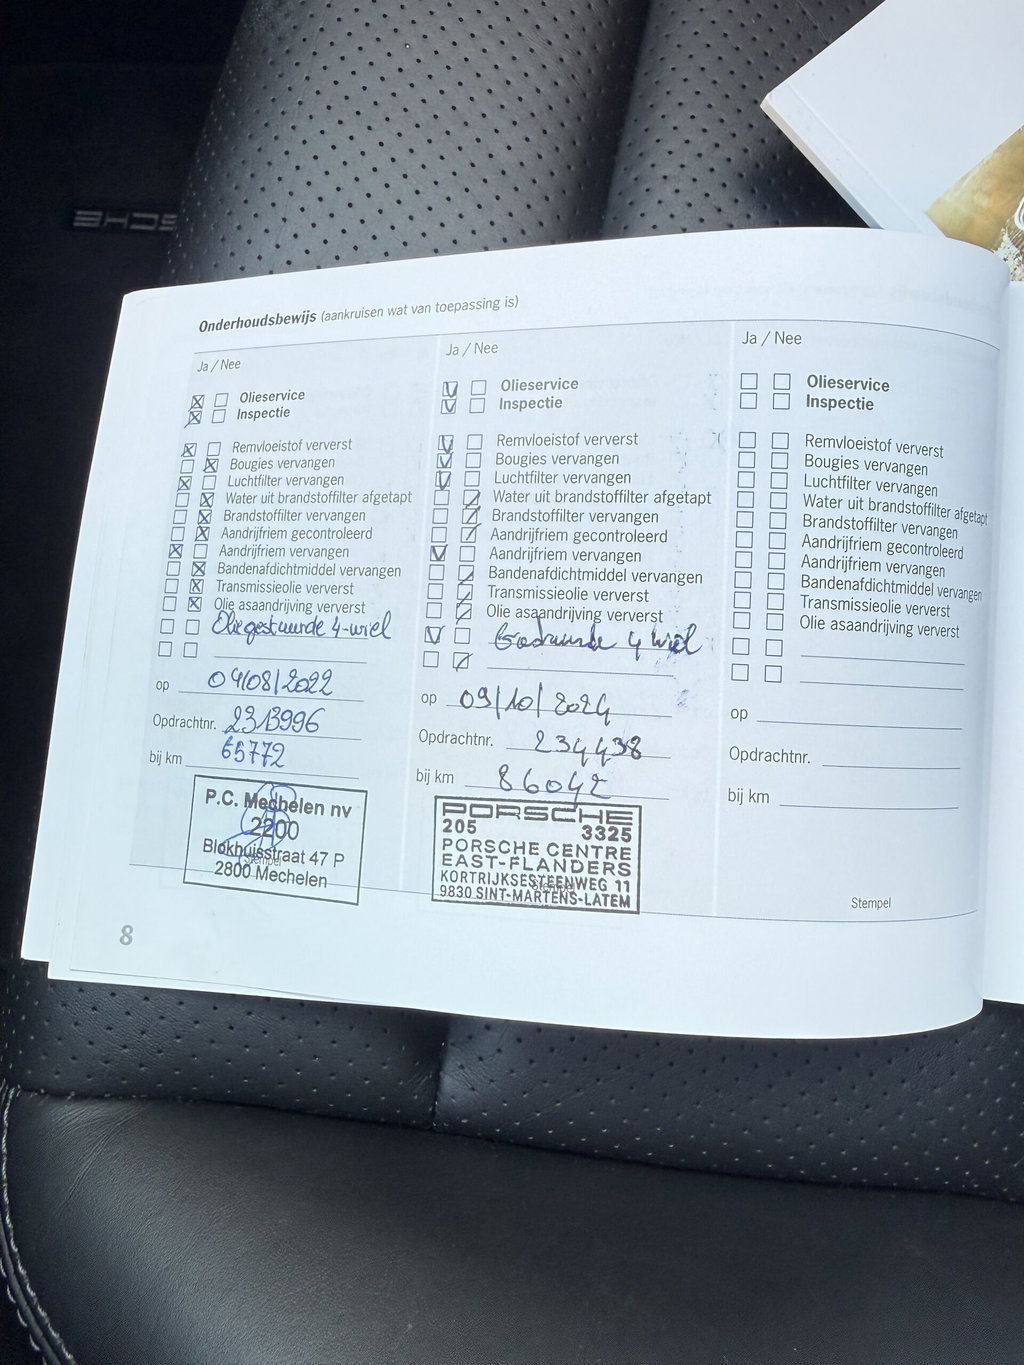 Onderhoudsbewijs (aankruisen wat van toepassing is)
Ja / Nee
Olieservice
Inspectie
Remvloeistof ververst
Bougies vervangen
Luchtfilter vervangen
Water uit brandstoffilter afgetapt
Brandstoffilter vervangen
Aandrijfriem gecontroleerd
Aandrijfriem vervangen
Bandenafdichtmiddel vervangen
Transmissieolie ververst
Olie asaandrijving ververst
Olie gestuurde 4-wiel
op 04/08/2022
Opdrachtnr. 2313996
bij km 65772
P.C. Mechelen nv
2200
Blokhuisstraat 47 P
Stempel
2800 Mechelen
Ja / Nee
Olieservice
Inspectie
Remvloeistof ververst
Bougies vervangen
Luchtfilter vervangen
Water uit brandstoffilter afgetapt
Brandstoffilter vervangen
Aandrijfriem gecontroleerd
Aandrijfriem vervangen
Bandenafdichtmiddel vervangen
Transmissieolie ververst
Olie asaandrijving ververst
4 wiel
op 09/10/2024
Opdrachtnr. 234438
bij km 86042
PORSCHE
205 3325
PORSCHE CENTRE
EAST-FLANDERS
KORTRIJKSESTEENWEG 11
Stempel
9830 SINT-MARTENS-LATEM
Ja / Nee
Olieservice
Inspectie
Remvloeistof ververst
Bougies vervangen
Luchtfilter vervangen
Water uit brandstoffilter afgetapt
Brandstoffilter vervangen
Aandrijfriem gecontroleerd
Aandrijfriem vervangen
Bandenafdichtmiddel vervangen
Transmissieolie ververst
Olie asaandrijving ververst
op
Opdrachtnr.
bij km
Stempel
8